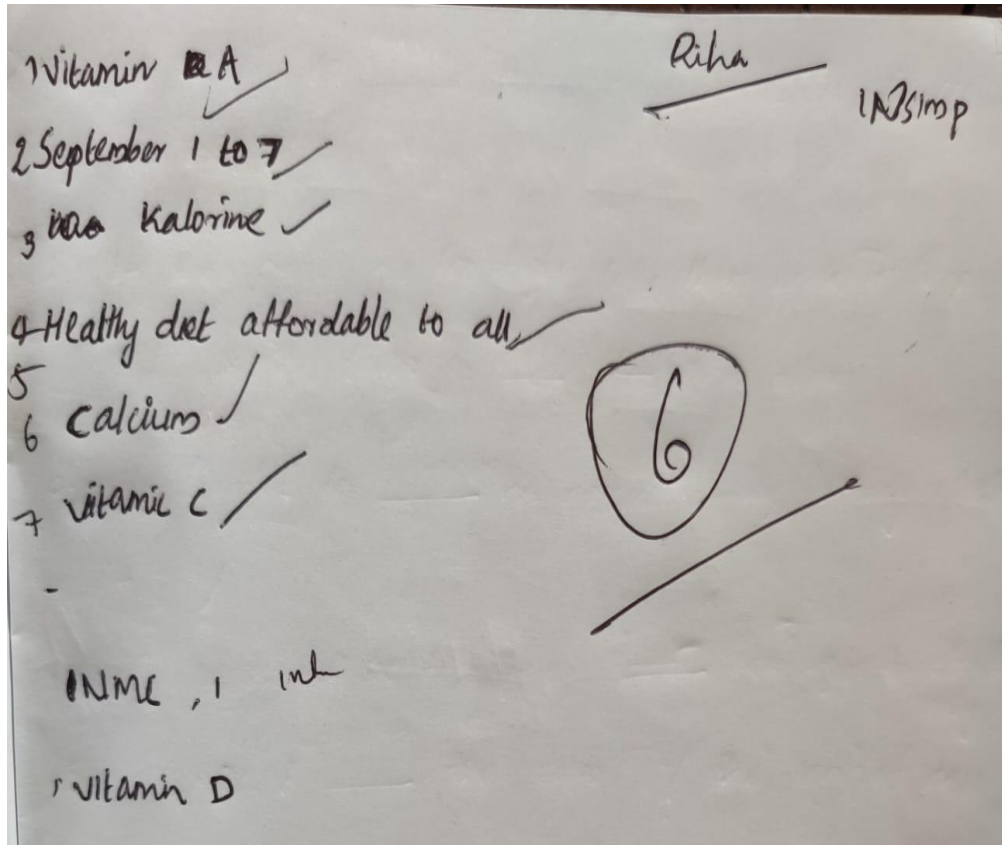 Riha
1) Vitamin A
2 September 1 to 7
3 Kalorine
4 Healthy diet affordable to all
5
6 Calcium
7 vitamic C
6
INMC, 1
vitamin D